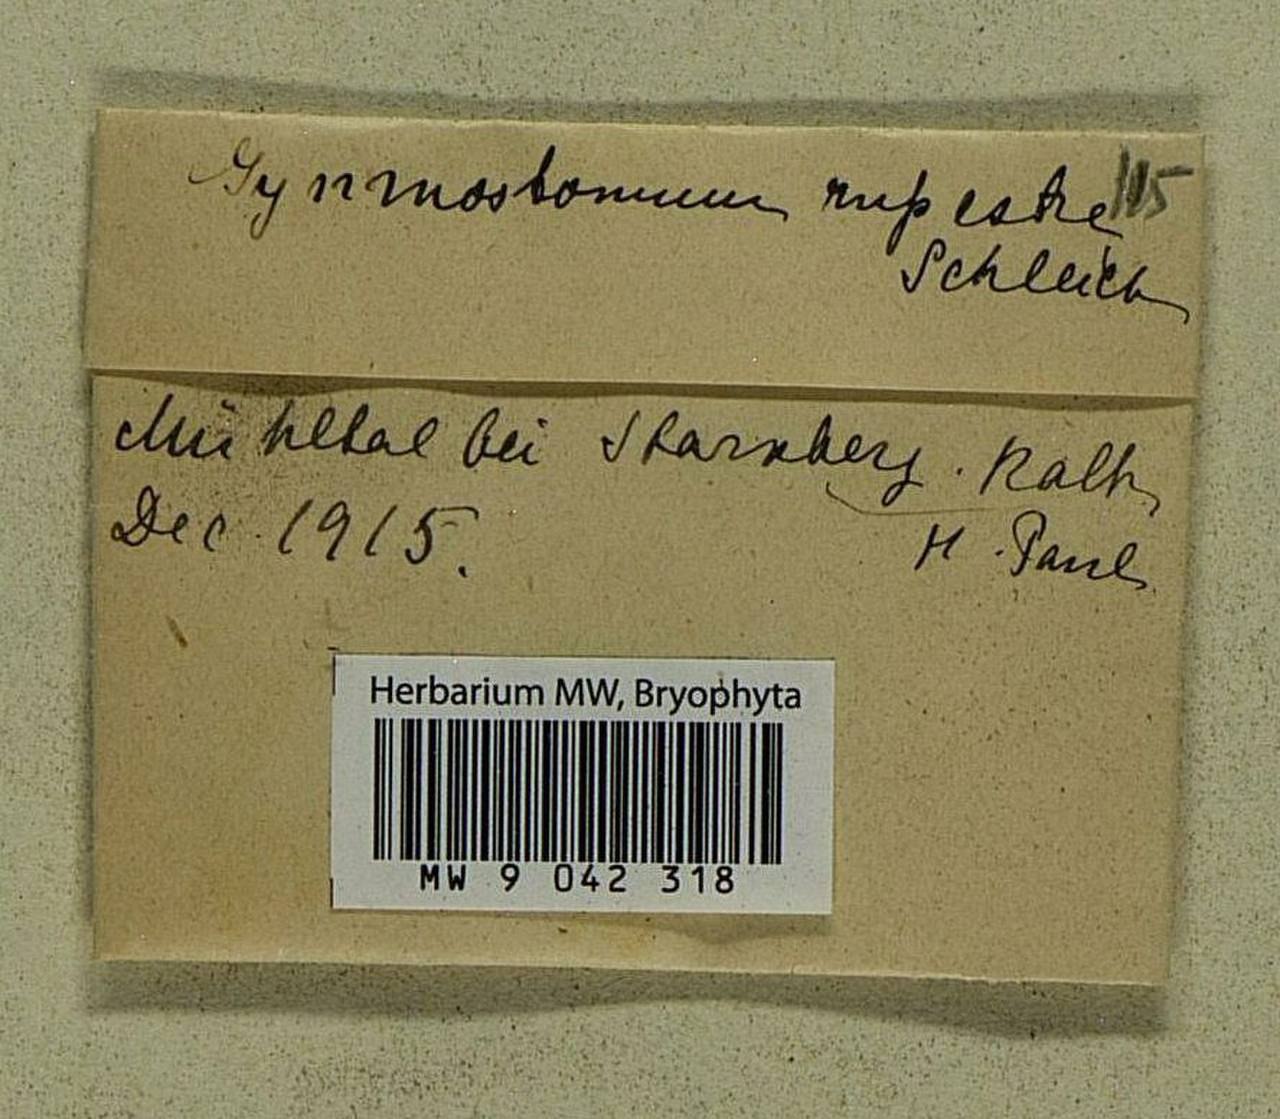 Gymnostomum rupestre 115
Schleich
Mühltal bei Starnberg. Kalk
Dec. 1915.
H. Paul
Herbarium MW, Bryophyta
MW 9 042 318